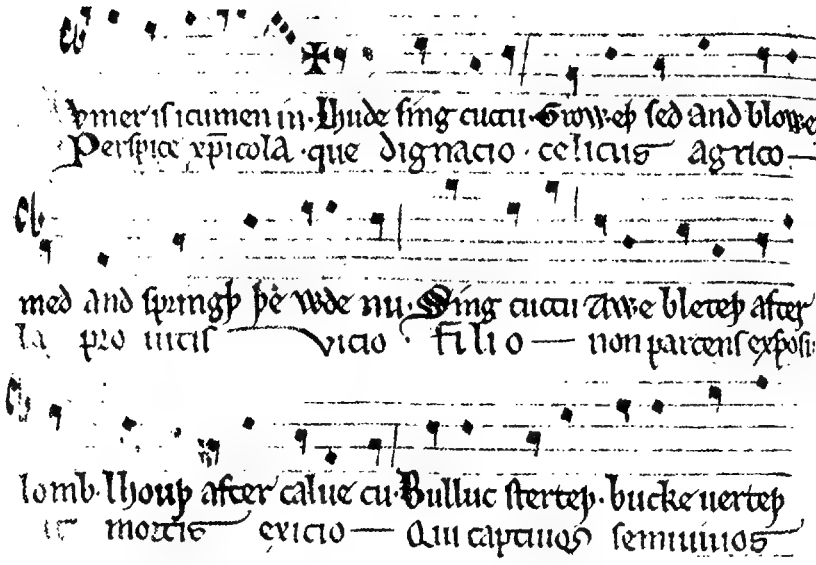 vmer is icumen in·Lhude sing cuccu·Groweþ sed and blowe
Perspice xp̄icola·que dignacio·celicus agrico—
med and springþ þe wde nu·Sing cuccu Awe bleteþ after
la pro uitis vicio·filio—non parcens exposi
lomb·lhouþ after calue cu·Bulluc sterteþ·bucke uerteþ
it mortis exicio—Qui captiuos semiuiuos